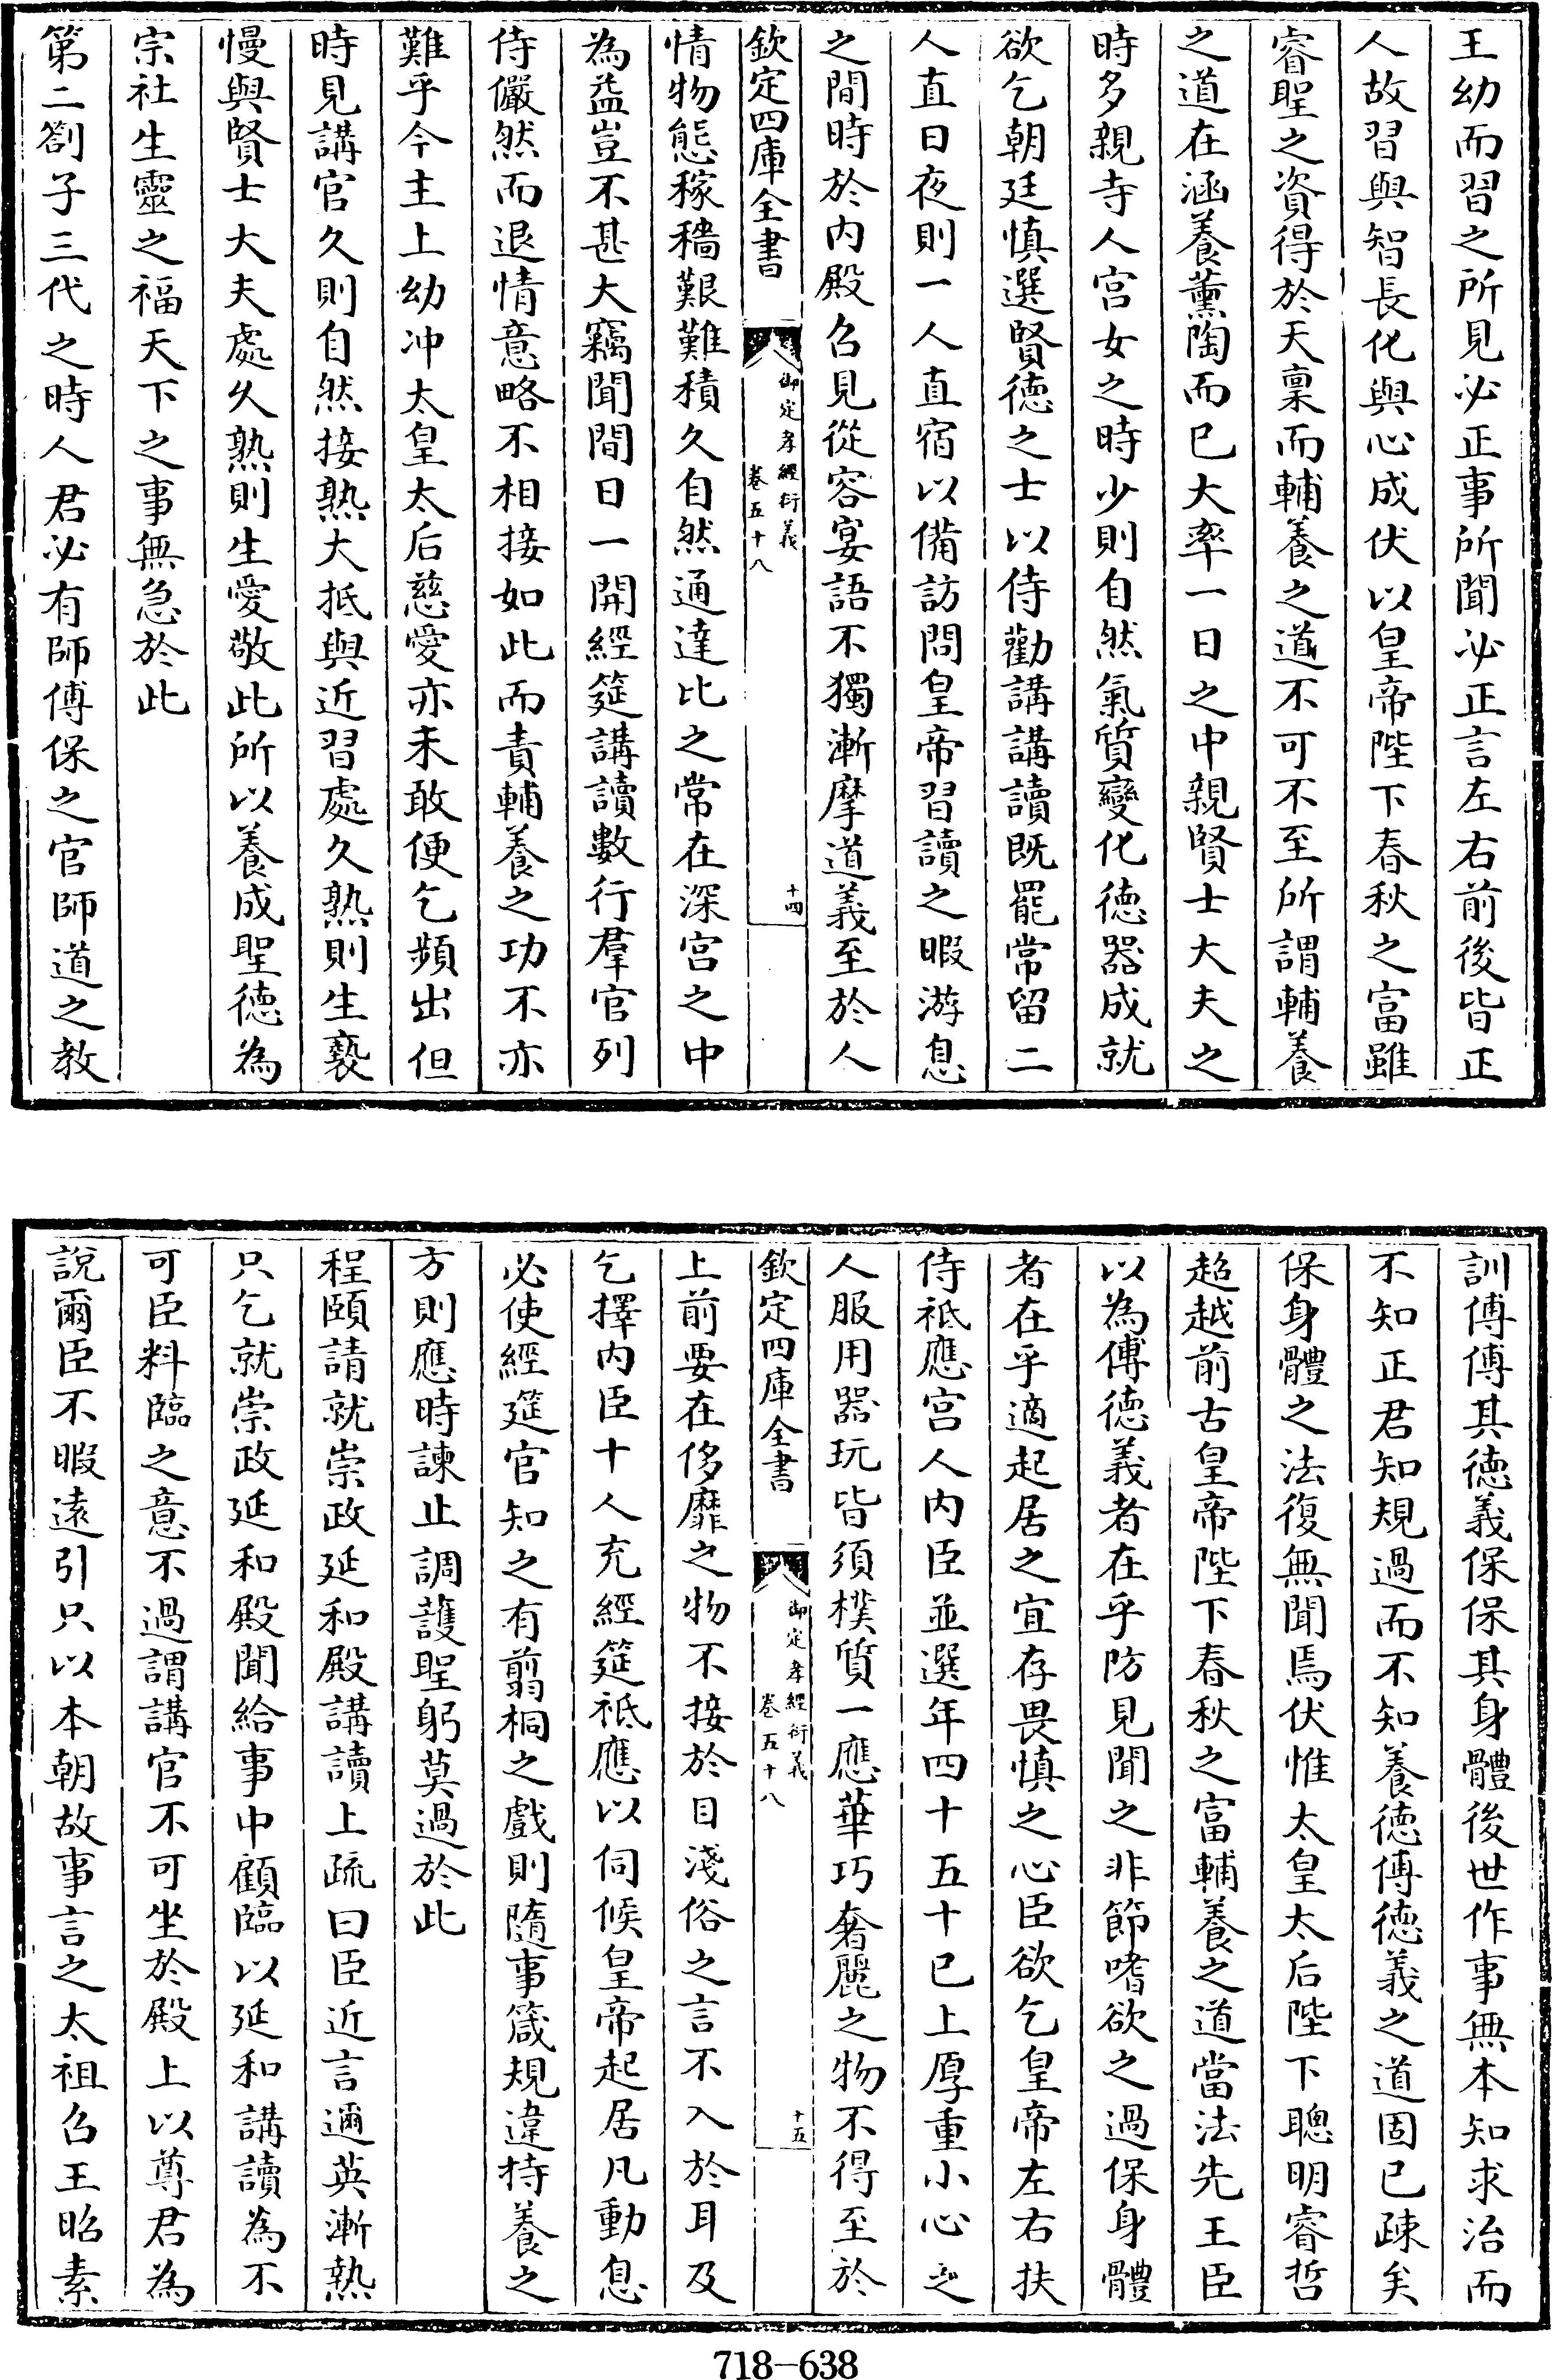 王幼而習之所見必正事所聞必正言左右前後皆正
人故習與智長化與心成伏以皇帝陛下春秋之富雖
睿聖之資得於天稟而輔養之道不可不至所謂輔養
之道在涵養薰陶而已大率一日之中親賢士大夫之
時多親寺人宮女之時少則自然氣質變化德器成就
欲乞朝廷慎選賢德之士以侍勸講講讀既罷常留二
人直日夜則一人直宿以備訪問皇帝習讀之暇游息
之間時於內殿召見從容宴語不獨漸摩道義至於人
欽定四庫全書
御定孝經衍義
卷五十八
十四
情物態稼穡艱難積久自然通達比之常在深宮之中
為益豈不甚大竊聞間日一開經筵講讀數行羣官列
侍儼然而退情意略不相接如此而責輔養之功不亦
難乎今主上幼冲太皇太后慈愛亦未敢便乞頻出但
時見講官久則自然接熟大抵與近習處久熟則生褻
慢與賢士大夫處久熟則生愛敬此所以養成聖德為
宗社生靈之福天下之事無急於此
第二劄子三代之時人君必有師傅保之官師道之教
訓傅傅其德義保保其身體後世作事無本知求治而
不知正君知規過而不知養德傅德義之道固已疎矣
保身體之法復無聞焉伏惟太皇太后陛下聰明睿哲
超越前古皇帝陛下春秋之富輔養之道當法先王臣
以為傅德義者在乎防見聞之非節嗜欲之過保身體
者在乎適起居之宜存畏慎之心臣欲乞皇帝左右扶
侍祗應宮人內臣並選年四十五十已上厚重小心之
人服用器玩皆須樸質一應華巧奢麗之物不得至於
欽定四庫全書
御定孝經衍義
卷五十八
十五
上前要在侈靡之物不接於目淺俗之言不入於耳及
乞擇內臣十人充經筵祗應以伺候皇帝起居凡動息
必使經筵官知之有翦桐之戲則隨事箴規違持養之
方則應時諫止調護聖躬莫過於此
程頤請就崇政延和殿講讀上疏曰臣近言邇英漸熱
只乞就崇政延和殿聞給事中顧臨以延和講讀為不
可臣料臨之意不過謂講官不可坐於殿上以尊君為
說爾臣不暇遠引只以本朝故事言之太祖召王昭素
718-638